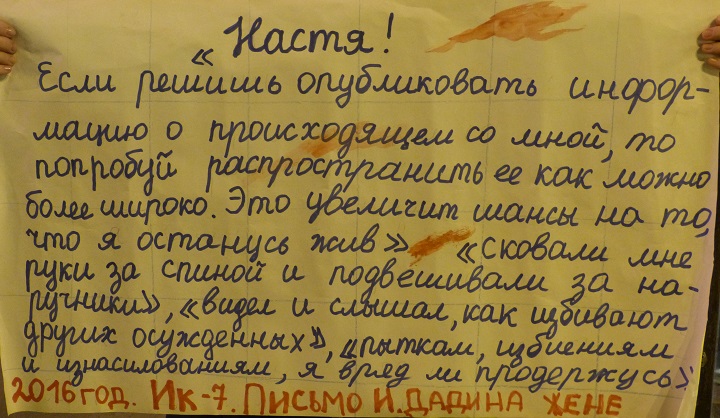 Настя!
«Если решишь опубликовать инфор-
мацию о происходящем со мной, то
попробуй распространить ее как можно
более широко. Это увеличит шансы на то,
что я останусь жив» «Сковали мне
руки за спиной и подвешивали за на-
ручники», «видел и слышал, как избивают
других осужденных», «пыткам, избиениям
и изнасилованиям, я вряд ли продержусь»
2016 год. ИК-7. Письмо И. Дадина жене